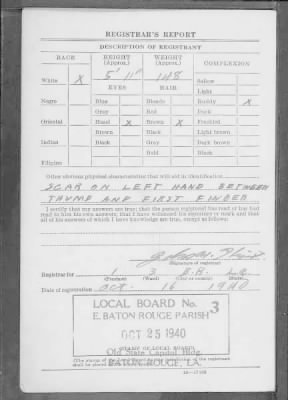 REGISTRAR'S REPORT
DESCRIPTION OF REGISTRANT
RACE HEIGHT (Approx.) WEIGHT (Approx.) COMPLEXION
White X 5' 11" 148 Sallow
EYES HAIR Light
Negro Blue Blonde Ruddy X
Gray Red Dark
Oriental Hazel X Brown X Freckled
Brown Black Light brown
Indian Black Gray Dark brown
Bald Black
Filipino
Other obvious physical characteristics that will aid in identification
SCAR ON LEFT HAND BETWEEN
THUMB AND FIRST FINGER
I certify that my answers are true; that the person registered has read or has had
read to him his own answers; that I have witnessed his signature or mark and that
all of his answers of which I have knowledge are true, except as follows:
(Signature of registrar)
Registrar for 1 3 E.B. La
(Precinct) (Ward) (City or county) (State)
Date of registration Oct. 16 1940
LOCAL BOARD No. 3
E. BATON ROUGE PARISH
OCT 25 1940
(STAMP OF LOCAL BOARD)
Old State Capitol Bldg.
(The stamp of the Local Board of the registrant
shall be placed
BATON ROUGE, LA.